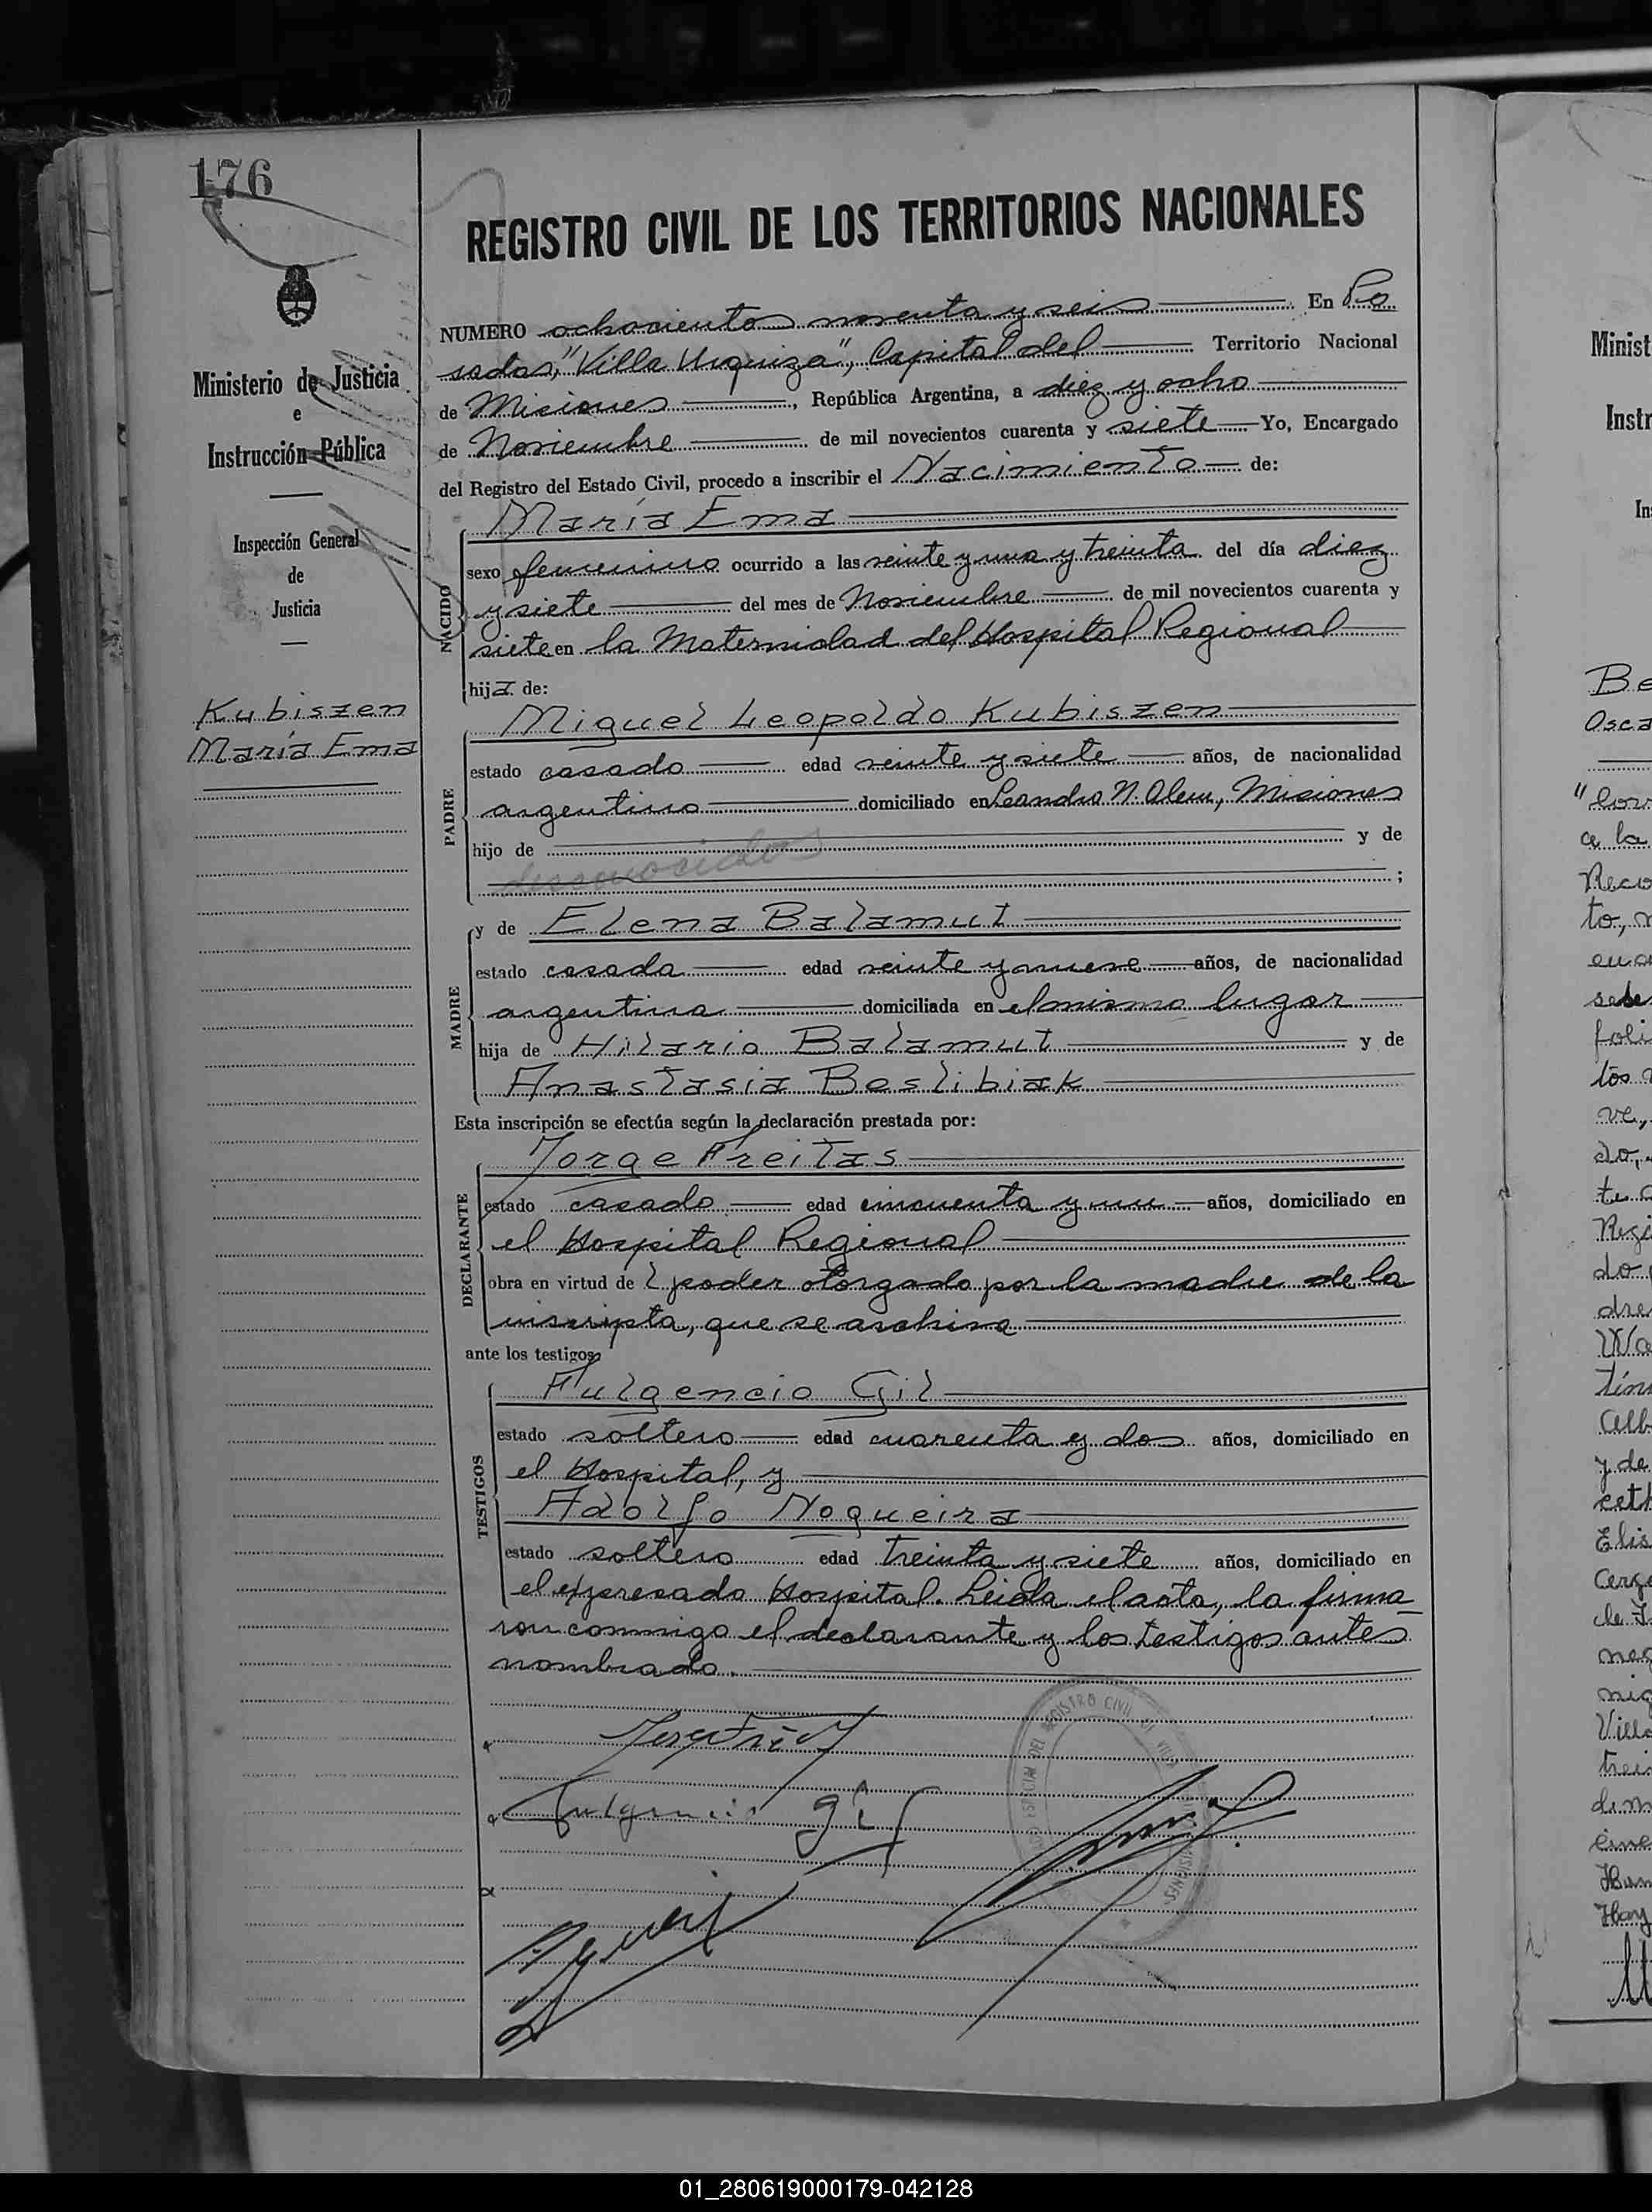 176
REGISTRO CIVIL DE LOS TERRITORIOS NACIONALES
Ministerio de Justicia
e
Instrucción Pública
Inspección General
de
Justicia
Kubiszen
María Ema
NUMERO ochocientos noventa y seis En Po
sadas, "Villa Urquiza", Capital del Territorio Nacional
de Misiones, República Argentina, a diez y ocho
de Noviembre de mil novecientos cuarenta y siete Yo, Encargado
del Registro del Estado Civil, procedo a inscribir el Nacimiento de:
NACIDO
María Ema
sexo femenino ocurrido a las veinte y una y treinta del día diez
y siete del mes de Noviembre de mil novecientos cuarenta y
siete en la Maternidad del Hospital Regional
hija de:
PADRE
Miguel Leopoldo Kubiszen
estado casado edad veinte y siete años, de nacionalidad
argentino domiciliado en Leandro N. Alem, Misiones
hijo de y de
desconocidos ;
MADRE
y de Elena Balamut
estado casada edad veinte y nueve años, de nacionalidad
argentina domiciliada en el mismo lugar
hija de Hilario Balamut y de
Anastasia Beslibiak
Esta inscripción se efectúa según la declaración prestada por:
DECLARANTE
Jorge Freitas
estado casado edad cincuenta y un años, domiciliado en
el Hospital Regional
obra en virtud de l poder otorgado por la madre de la
inscripta, que se archiva
ante los testigos
TESTIGOS
Fulgencio Gil
estado soltero edad cuarenta y dos años, domiciliado en
el Hospital, y
Adolfo Nogueira
estado soltero edad treinta y siete años, domiciliado en
el expresado Hospital. Leida el acta, la firma
ron conmigo el declarante y los testigos antes
nombrado.
Fulgencio Gil
REGISTRO CIVIL
MISIONES
Minist
Instr
In
Be
Osca
01_280619000179-042128